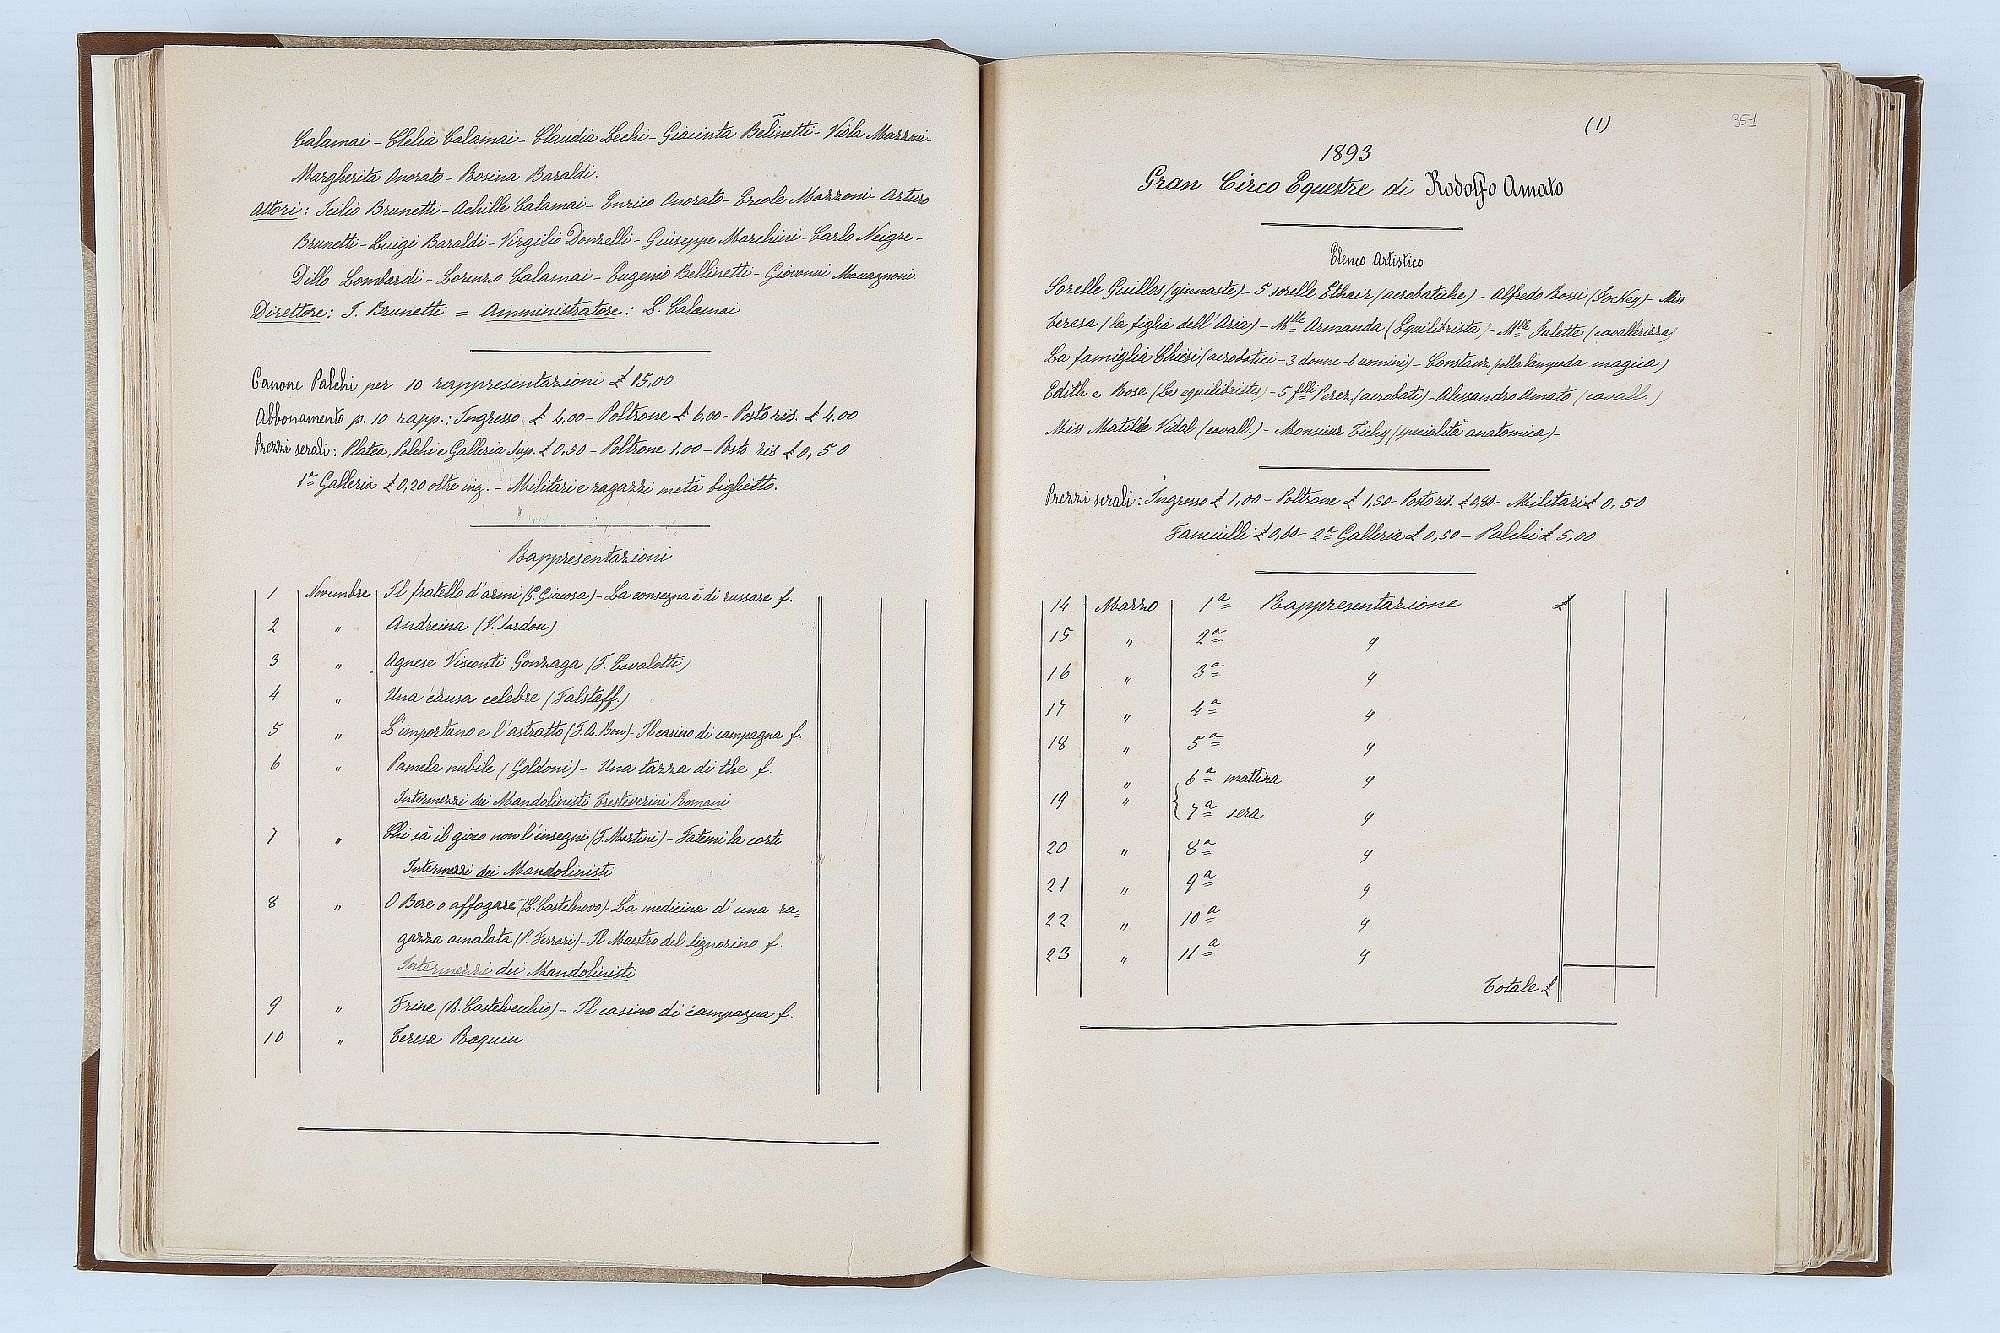 Calamai - Clelia Calamai - Claudia Lechi - Giacinta Belinetti - Viola Mazzoni -
Margherita Onorato - Rosina Baraldi.
Attori: Icilio Brunetti - Achille Calamai - Enrico Onorato - Ercole Mazzoni - Arturo
Brunetti - Luigi Baraldi - Virgilio Donzelli - Giuseppe Marchini - Carlo Neigre -
Dillo Lombardi - Lorenzo Calamai - Eugenio Bellinetti - Giovanni
Direttore: I. Brunetti = Amministratore: L. Calamai
Canone Palchi per 10 rappresentazioni £ 15,00
Abbonamento p. 10 rapp.: Ingresso £ 4,00 - Poltrone £ 6,00 - Posto ris. £ 4,00
Prezzi serali: Platea, Palchi e Galleria Sup. £ 0,50 - Poltrone 1,00 - Posto ris £ 0,50
1ª Galleria £ 0,20 oltre ing. - Militari e ragazzi metà biglietto.
Rappresentazioni
1 Novembre Il fratello d'armi (G. Giacosa) - La consegna è di russare f.
2 " Andreina (V. Sardou)
3 " Agnese Visconti Gonzaga (F. Cavalotti)
4 " Una causa celebre (Falstaff.)
5 " L'importuno e l'astratto (F. A. Bon) - Il casino di campagna f.
6 " Pamela nubile (Goldoni) - Una tazza di the f.
Intermezzi dei Mandolinisti Tresteverini Romani
7 " Chi sà il gioco non l'insegni (F. Martini) - Fatemi la corte
Intermezzi dei Mandolinisti
8 " O Bere o affogare (L. Castelnovo) - La medicina d'una ra=
gazza amalata (P. Ferrari) - Il Maestro del signorino f.
Intermezzi dei Mandolinisti
9 " Frine (R. Castelvecchio) - Il casino di campagna f.
10 " Teresa Raquin
351
(1)
1893
Gran Circo Equestre di Rodolfo Amato
Elenco Artistico
Sorelle Guillas (ginnaste) - 5 sorelle (acrobatiche) - Alfredo Rossi (Jockey) - Mis
Teresa (la figlia dell'Aria) - Mlle Armanda (Equilibrista) - Mlle Juletta (cavallerizza)
La famiglia Chiesi (acrobatici - 3 donne - 2 uomini) - Constanz (magica)
Edith e Rosa (Les equilibristes) - 5 flli Perez (acrobati) - Alessandro Amato (cavall.)
Miss Matilde Vidal (cavall.) - Monsieur Tichy (specialità anatomica) -
Prezzi serali: Ingresso £ 1,00 - Poltrone £ 1,50 - Posto ris. £ 0,80 - Militari £ 0,50
Fanciulli £ 0,60 - 2ª Galleria £ 0,50 - Palchi £ 5,00
14 Marzo 1ª Rappresentazione £
15 " 2ª "
16 " 3ª "
17 " 4ª "
18 " 5ª "
" 6ª mattina "
19 " 7ª sera "
20 " 8ª "
21 " 9ª "
22 " 10ª "
23 " 11ª "
Totale £